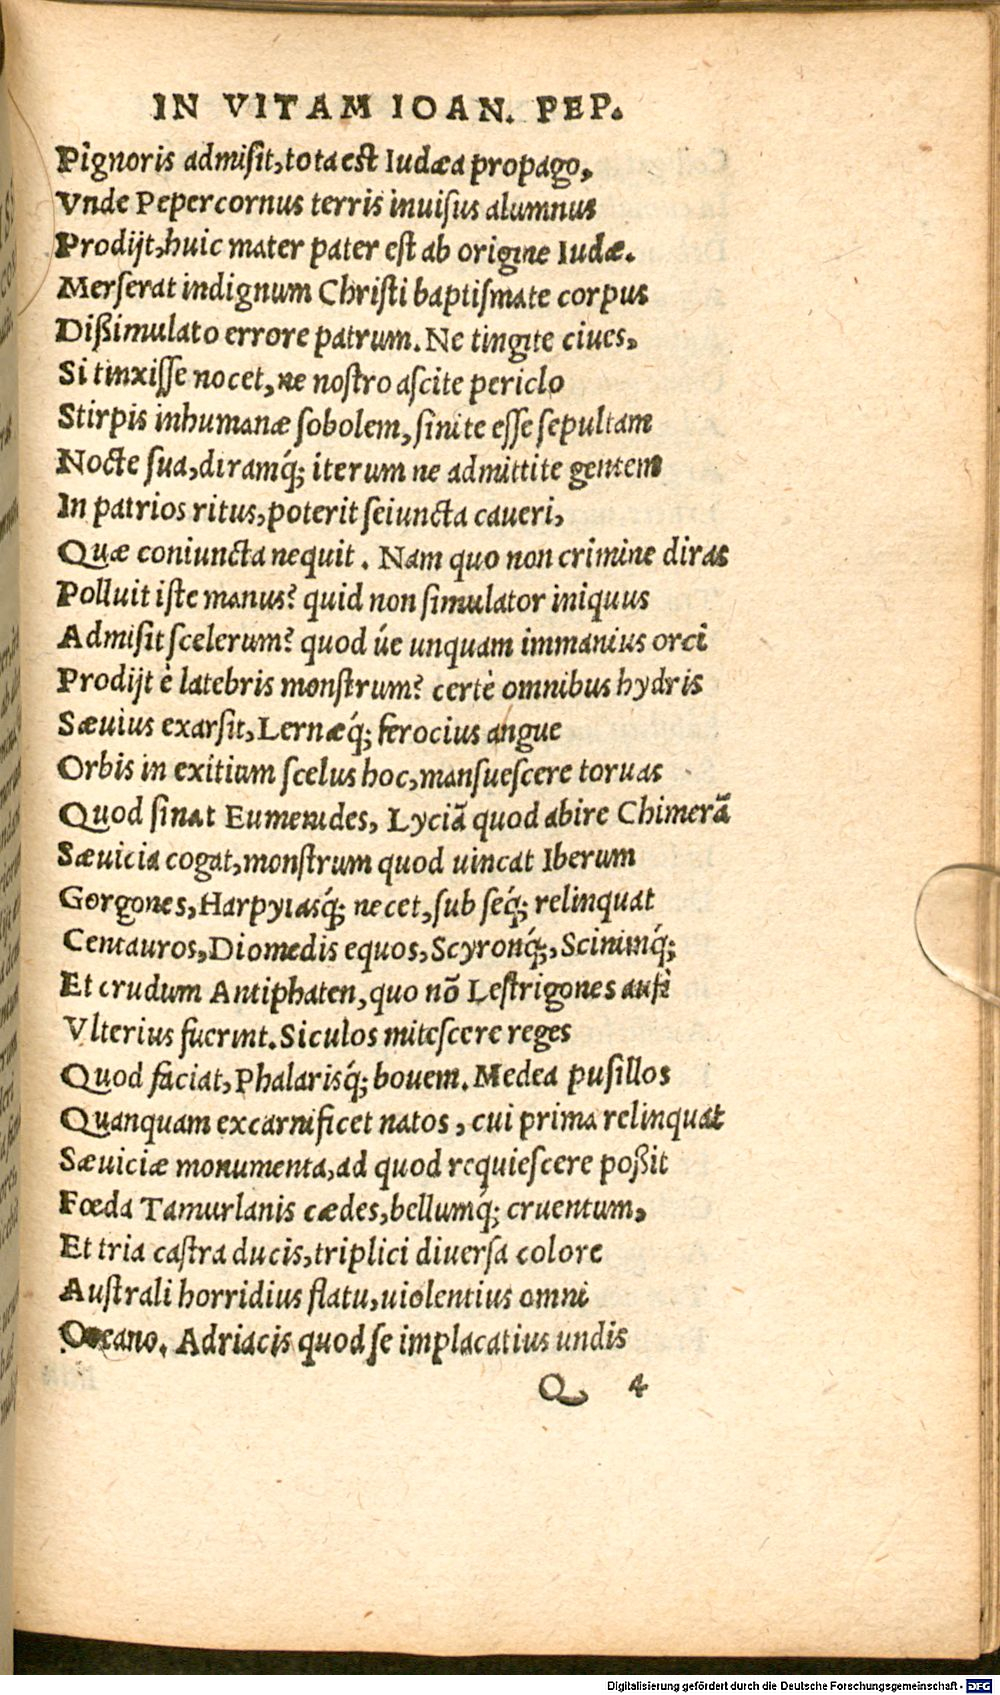 IN VITAM IOAN. PEP.
Pignoris admisit, tota est Iudæa propago,
Vnde Pepercornus terris inuisus alumnus
Prodijt, huic mater pater est ab origine Iudæ.
Merserat indignum Christi baptismate corpus
Dißimulato errore patrum. Ne tingite ciues,
Si tinxisse nocet, ne nostro ascite periclo
Stirpis inhumanæ sobolem, sinite esse sepultam
Nocte sua, diramq́; iterum ne admittite gentem
In patrios ritus, poterit seiuncta caueri,
Quæ coniuncta nequit. Nam quo non crimine diras
Polluit iste manus? quid non simulator iniquus
Admisit scelerum? quod úe unquam immanius orci
Prodijt è latebris monstrum? certè omnibus hydris
Sæuius exarsit, Lernæq́; ferocius angue
Orbis in exitium scelus hoc, mansuescere toruas
Quod sinat Eumenides, Lyciã quod abire Chimerã
Sæuicia cogat, monstrum quod uincat Iberum
Gorgones, Harpyiasq́; necet, sub seq́; relinquat
Centauros, Diomedis equos, Scyronq́;, Scinimq́;
Et crudum Antiphaten, quo nõ Lestrigones ausi
Vlterius fuerint. Siculos mitescere reges
Quod faciat, Phalarisq́; bouem. Medea pusillos
Quanquam excarnificet natos, cui prima relinquat
Sæuiciæ monumenta, ad quod requiescere poßit
Fœda Tamurlanis cædes, bellumq́; cruentum,
Et tria castra ducis, triplici diuersa colore
Australi horridius flatu, uiolentius omni
Oceano. Adriacis quod se implacatius undis
Q 4
Digitalisierung gefördert durch die Deutsche Forschungsgemeinschaft - DFG